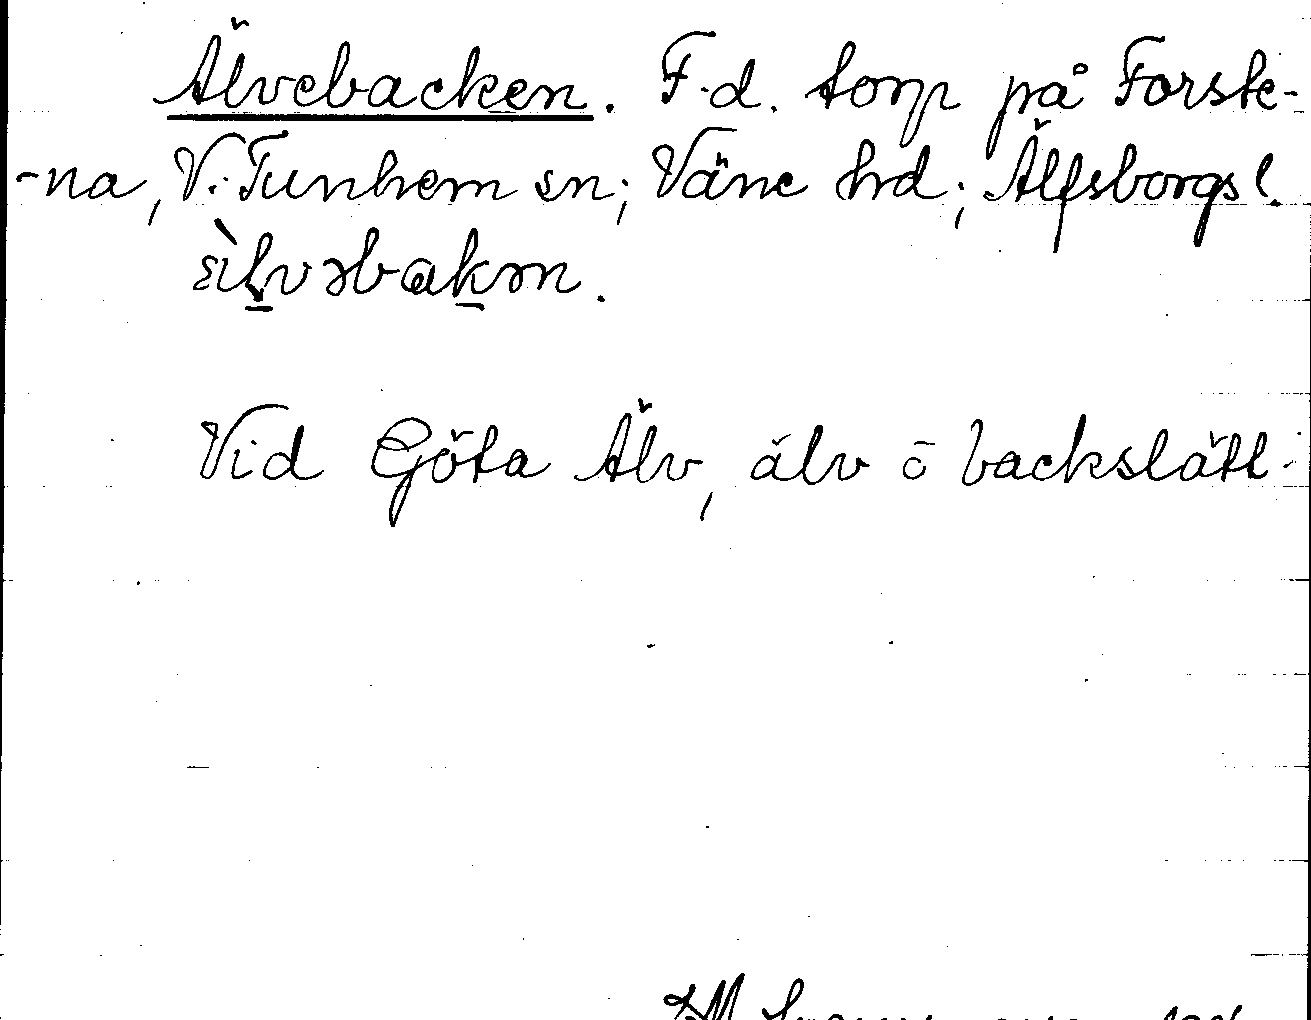 Älvebacken. F.d. torp på Forste-
-na, V. Tunhem sn; Väne hrd; Älfsborgs l.
Vid Göta Älv, älv o backslätt.